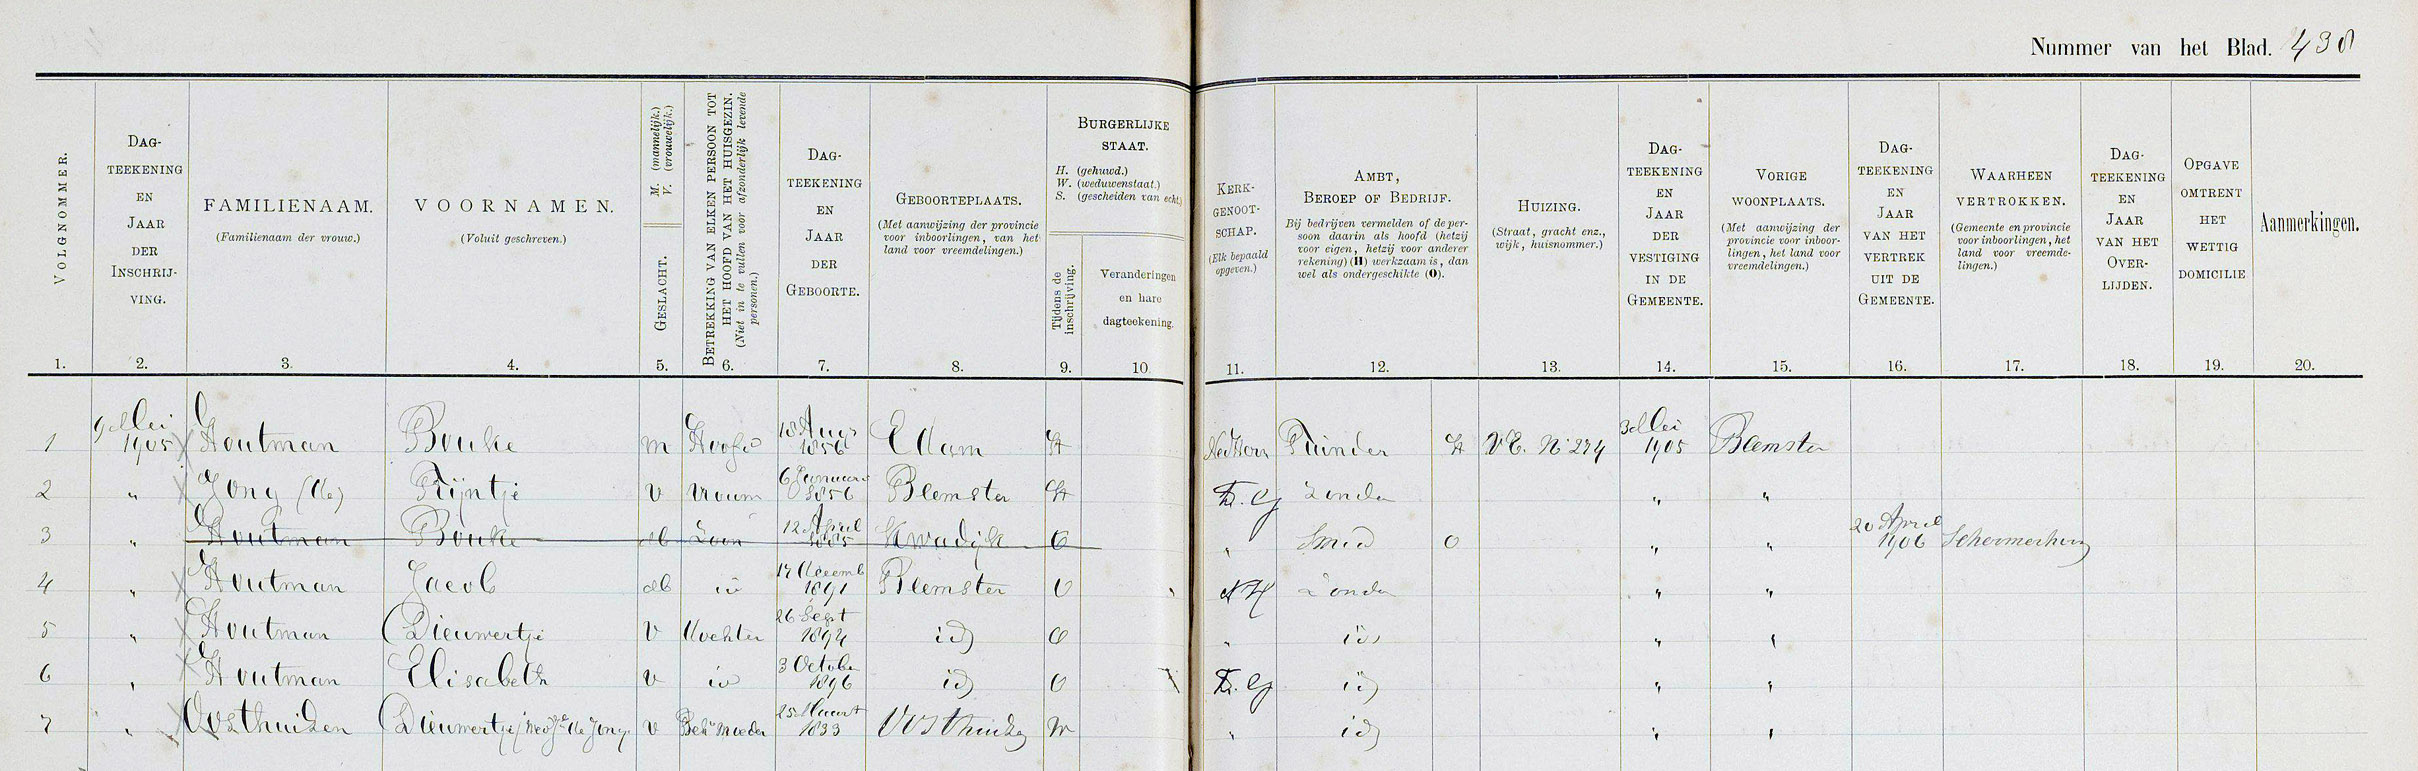 Nummer van het Blad. 438
VOLGNOMMER.
DAG-
TEEKENING
EN
JAAR
DER
INSCHRIJ-
VING.
FAMILIENAAM.
(Familienaam der vrouw.)
VOORNAMEN.
(Voluit geschreven.)
M. (mannelijk.)
V. (vrouwelijk.)
GESLACHT.
BETREKKING VAN ELKEN PERSOON TOT
HET HOOFD VAN HET HUISGEZIN.
(Niet in te vullen voor afzonderlijk levende
personen.)
DAG-
TEEKENING
EN
JAAR
DER
GEBOORTE.
GEBOORTEPLAATS.
(Met aanwijzing der provincie
voor inboorlingen, van het
land voor vreemdelingen.)
BURGERLIJKE
STAAT.
H. (gehuwd.)
W. (weduwenstaat.)
S. (gescheiden van echt.)
Tijdens de
inschrijving.
Veranderingen
en hare
dagteekening.
KERK-
GENOOT-
SCHAP.
(Elk bepaald
opgeven.)
AMBT,
BEROEP OF BEDRIJF.
Bij bedrijven vermelden of de per-
soon daarin als hoofd (hetzij
voor eigen, hetzij voor anderer
rekening) (H) werkzaam is, dan
wel als ondergeschikte (O).
HUIZING.
(Straat, gracht enz.,
wijk, huisnommer.)
DAG-
TEEKENING
EN
JAAR
DER
VESTIGING
IN DE
GEMEENTE.
VORIGE
WOONPLAATS.
(Met aanwijzing der
provincie voor inboor-
lingen, het land voor
vreemdelingen.)
DAG-
TEEKENING
EN
JAAR
VAN HET
VERTREK
UIT DE
GEMEENTE.
WAARHEEN
VERTROKKEN.
(Gemeente en provincie
voor inboorlingen, het
land voor vreemde-
lingen.)
DAG-
TEEKENING
EN
JAAR
VAN HET
OVER-
LIJDEN.
OPGAVE
OMTRENT
HET
WETTIG
DOMICILIE
Aanmerkingen.
1. 2. 3. 4. 5. 6. 7. 8. 9. 10. 11. 12. 13. 14. 15. 16. 17. 18. 19. 20.
1 9 Mei 1905 Houtman Bouke m Hoofd 18 Aug 1856 Edam H Ned Herv Tuinder H V E. N 274 3 Mei 1905 Beemster
2 " Jong (de) Trijntje v vrouw 6 Januari 1856 Beemster H D. G Zonder " "
3 " Houtman Bouke M Zoon 12 April 1885 Kwadijk O " Smid O " " 20 April 1906 Schermerhorn
4 " Houtman Jacob M id 17 Decemb 1891 Beemster O N H Zonder " "
5 " Houtman Dieuwertje V Dochter 26 Sept 1894 id O " id " "
6 " Houtman Elisabeth v id 3 October 1896 id O D. G id " "
7 " Oosthuizen Dieuwertje/ wed de Jong v Beh moeder 25 Maart 1833 Oosthuizen W " id " "